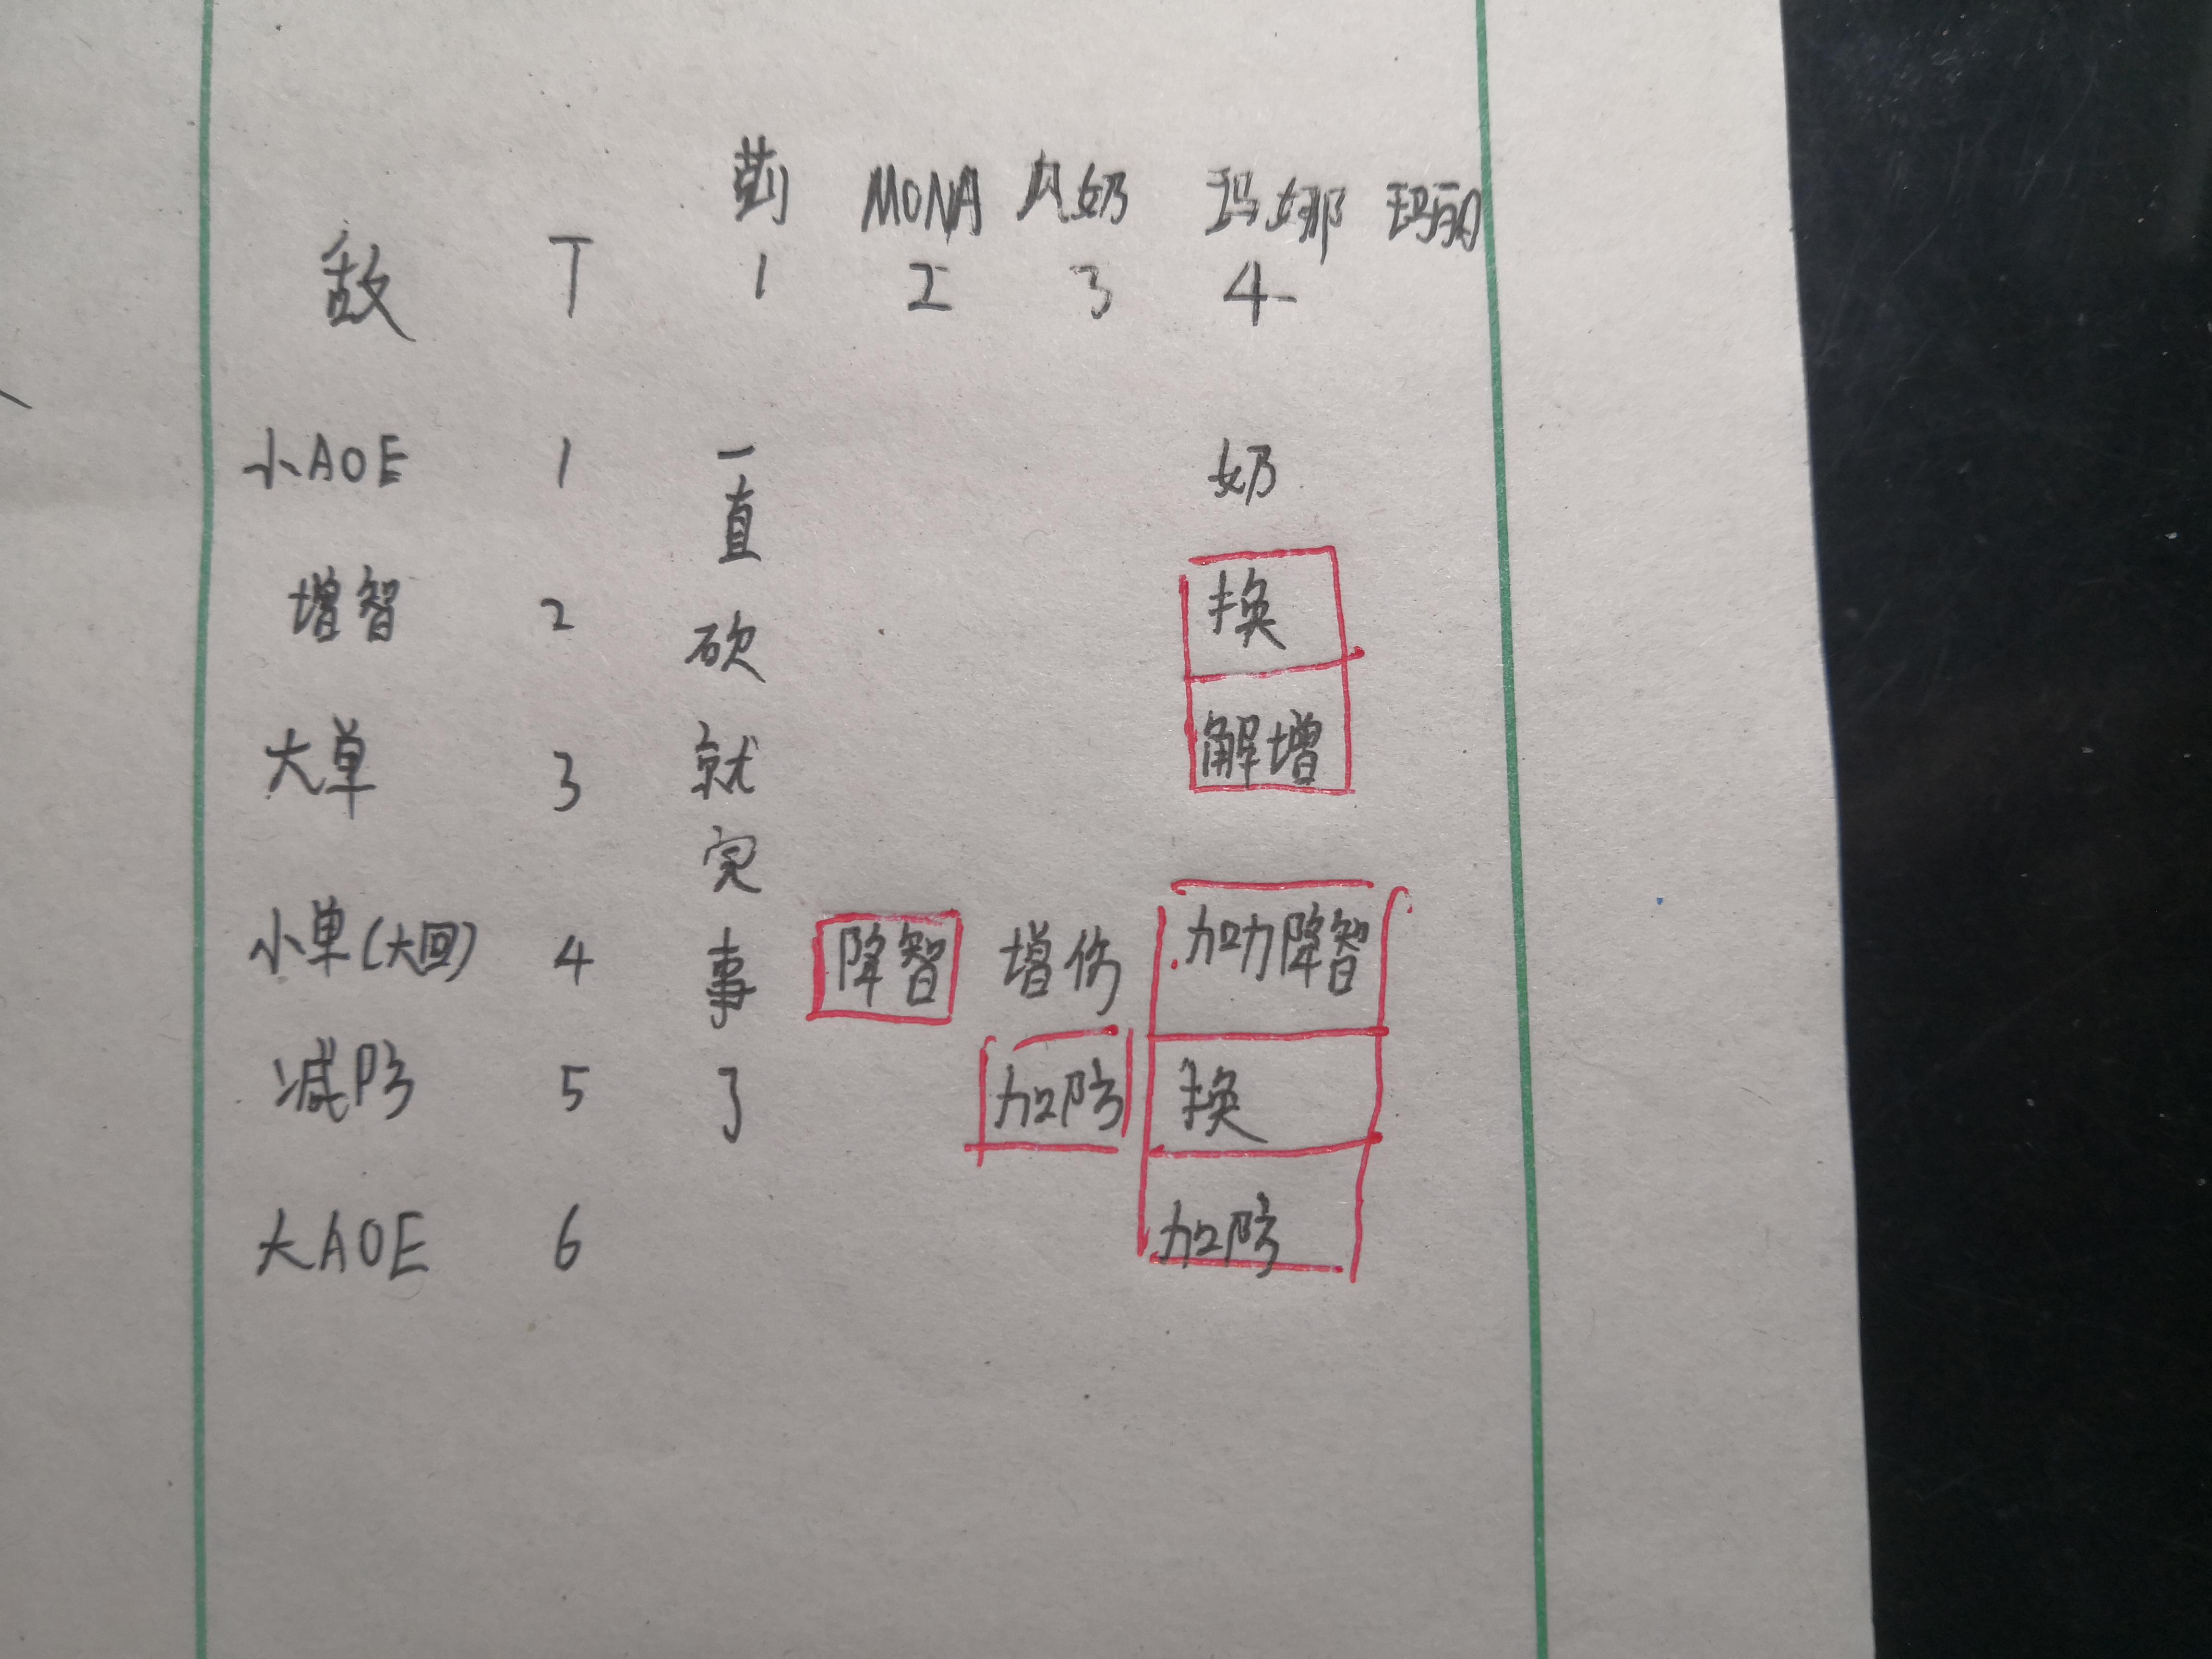 MONA 内奶 玛娜 玛丽
敌 T 1 2 3 4
小AOE 1 奶
增智 2 换
大单 3 解增
小单(大回) 4 降智 增伤 加力降智
减防 5 加防 换
大AOE 6 加防
一直砍就完事了